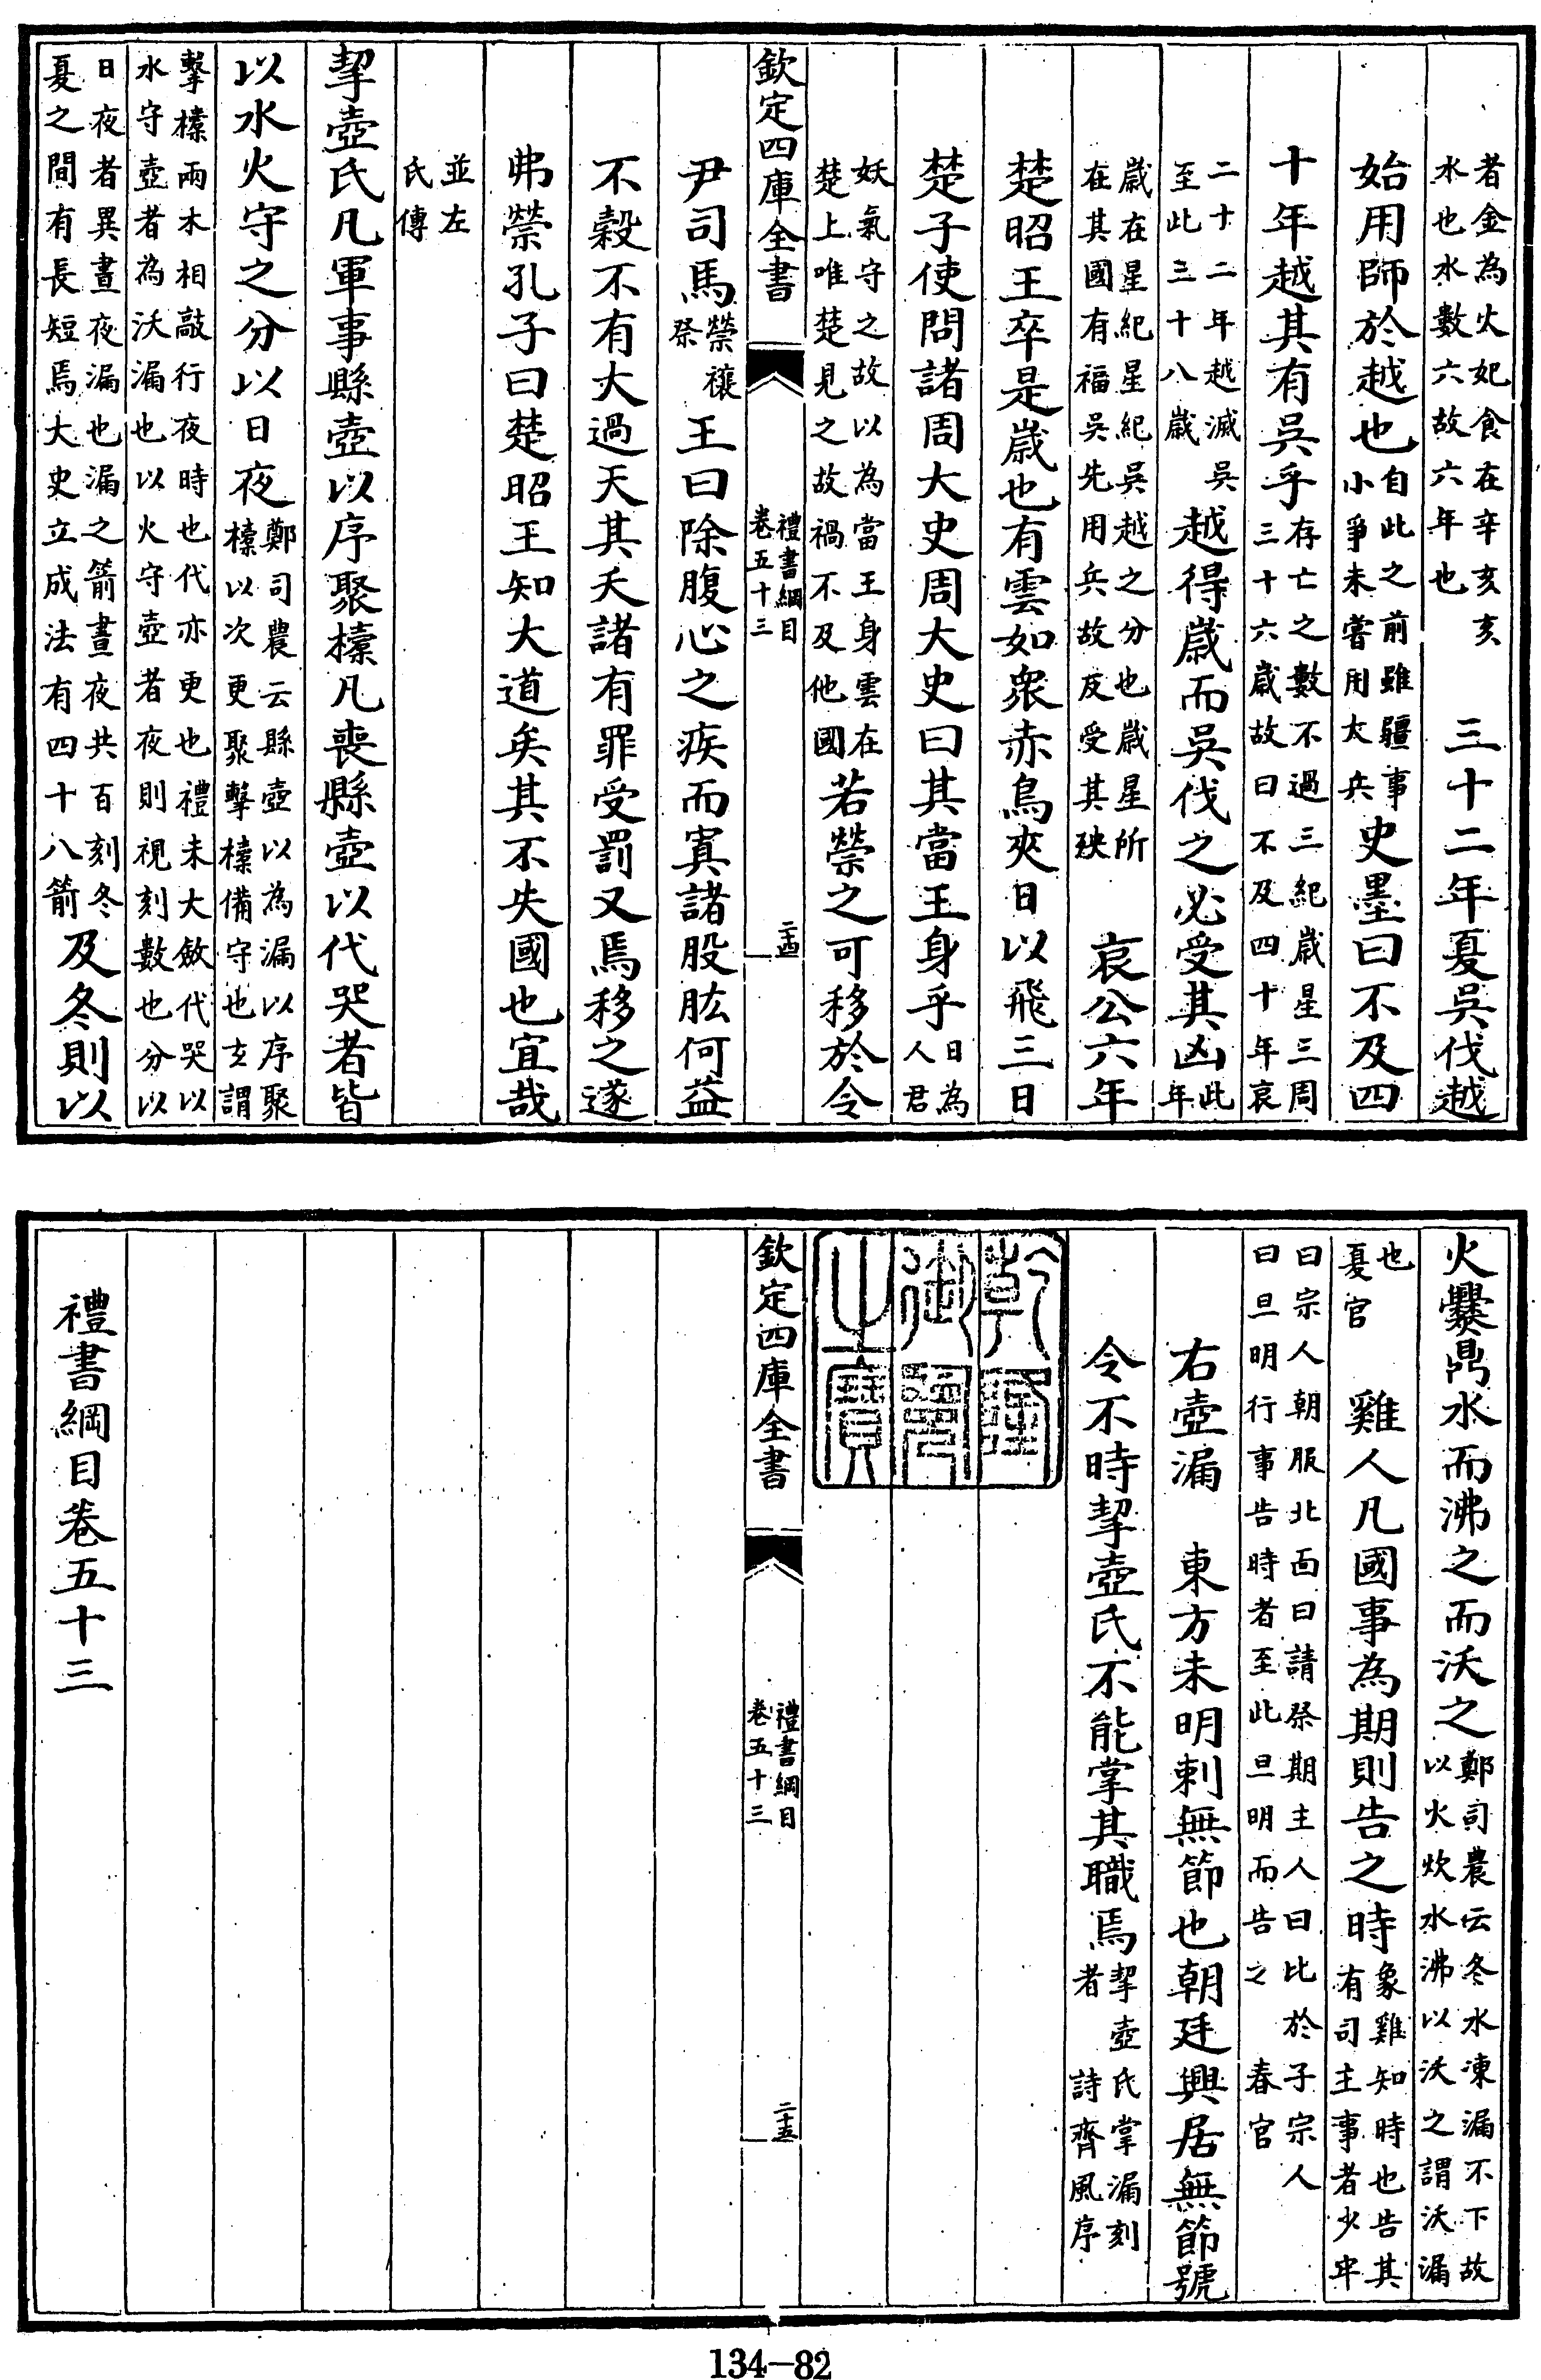 者金為火妃食在辛亥亥
水也水數六故六年也
三十二年夏吳伐越
始用師於越也
自此之前雖疆事
小爭未嘗用大兵
史墨曰不及四
十年越其有吳乎
存亡之數不過三紀歲星三周
三十六歲故曰不及四十年哀
二十二年越滅吳
至此三十八歲
越得歲而吳伐之必受其凶
此
年
歲在星紀星紀吳越之分也歲星所
在其國有福吳先用兵故反受其殃
哀公六年
楚昭王卒是歲也有雲如衆赤鳥夾日以飛三日
楚子使問諸周大史周大史曰其當王身乎
日為
人君
妖氣守之故以為當王身雲在
楚上唯楚見之故禍不及他國
若禜之可移於令
欽定四庫全書
禮書綱目
卷五十三
二十四
尹司馬
禜禳
祭
王曰除腹心之疾而寘諸股肱何益
不穀不有大過天其夭諸有罪受罰又焉移之遂
弗禜孔子曰楚昭王知大道矣其不失國也宜哉
並左
氏傳
挈壺氏凡軍事縣壺以序聚㯓凡喪縣壺以代哭者皆
以水火守之分以日夜
鄭司農云縣壺以為漏以序聚
㯓以次更聚擊㯓備守也玄謂
擊㯓兩木相敲行夜時也代亦更也禮未大斂代哭以
水守壺者為沃漏也以火守壺者夜則視刻數也分以
日夜者異晝夜漏也漏之箭晝夜共百刻冬
夏之間有長短焉大史立成法有四十八箭
及冬則以
火爨鼎水而沸之而沃之
鄭司農云冬水凍漏不下故
以火炊水沸以沃之謂沃漏
也
夏官
雞人凡國事為期則告之時
象雞知時也告其
有司主事者少牢
曰宗人朝服北面曰請祭期主人曰比於子宗人
曰旦明行事告時者至此旦明而告之 春官
右壺漏 東方未明刺無節也朝廷興居無節號
令不時挈壺氏不能掌其職焉
挈壺氏掌漏刻
者 詩齊風序
乾隆
御覽
之寶
欽定四庫全書
禮書綱目
卷五十三
二十五
禮書綱目卷五十三
134-82